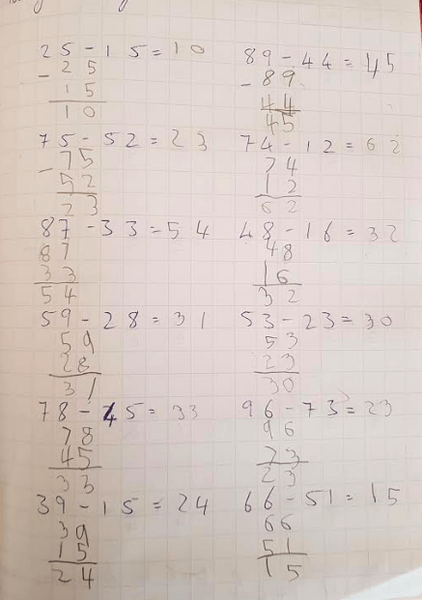 25-15=10
- 25
15
10
89-44=45
- 89
44
45
75-52=23
- 75
52
23
74-12=62
74
12
62
87-33=54
87
33
54
48-16=32
48
16
32
59-28=31
59
28
31
53-23=30
53
23
30
78-45=33
78
45
33
96-73=23
96
73
23
39-15=24
39
15
24
66-51=15
66
51
15